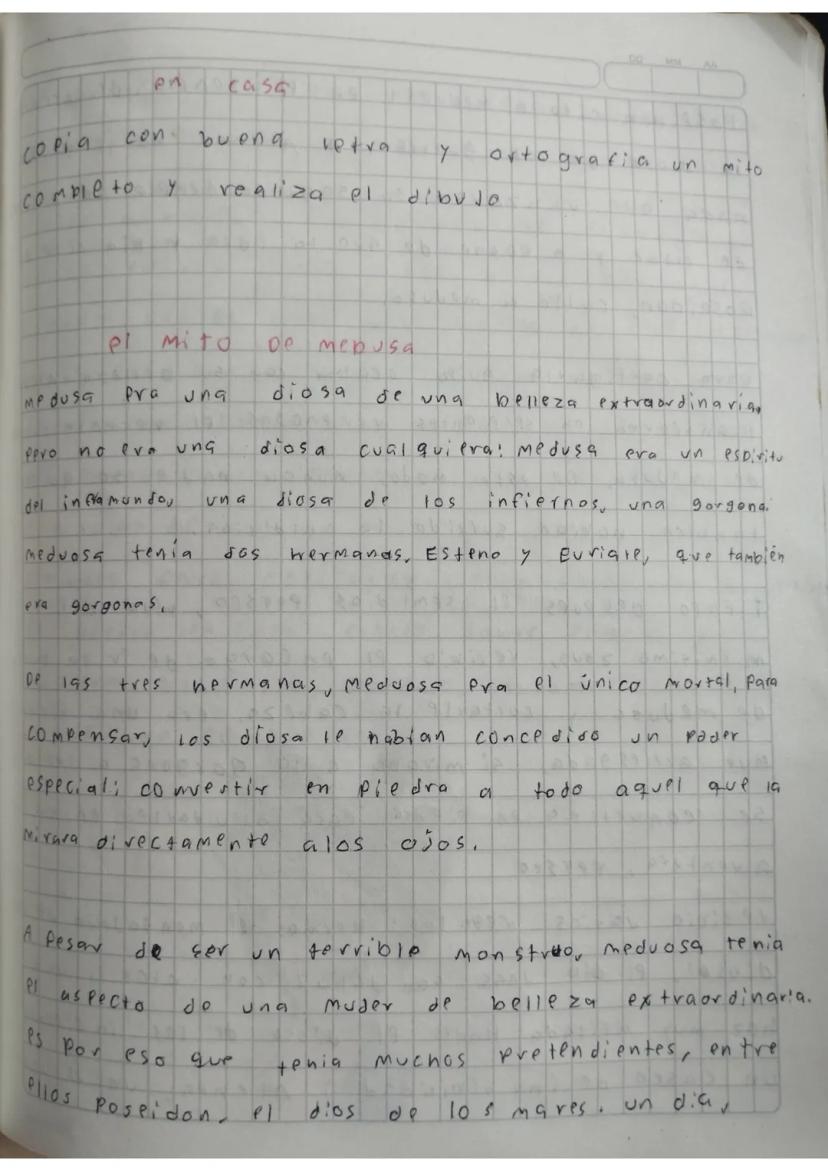 DD MM AA
en casa
copia con buena letra y ortografia un mito
completo y realiza el dibujo
el mito de medusa
medusa era una diosa de una belleza extraordinaria,
pero no era una diosa cualquiera: medusa era un espíritu
del inframundo, una diosa de los infiernos, una gorgona.
meduosa tenía dos hermanas, Esteno y Euriale, que también
era gorgonas.
De las tres hermanas, meduosa era el único mortal, para
compensar, los diosa le habían concedido un poder
especial: convertir en piedra a todo aquel que la
mirara directamente alos ojos.
A pesar de ser un terrible monstruo, meduosa tenia
el aspecto de una muder de belleza extraordinaria.
es por eso que tenia muchos pretendientes, entre
ellos poseidon, el dios de los mares. un dia,